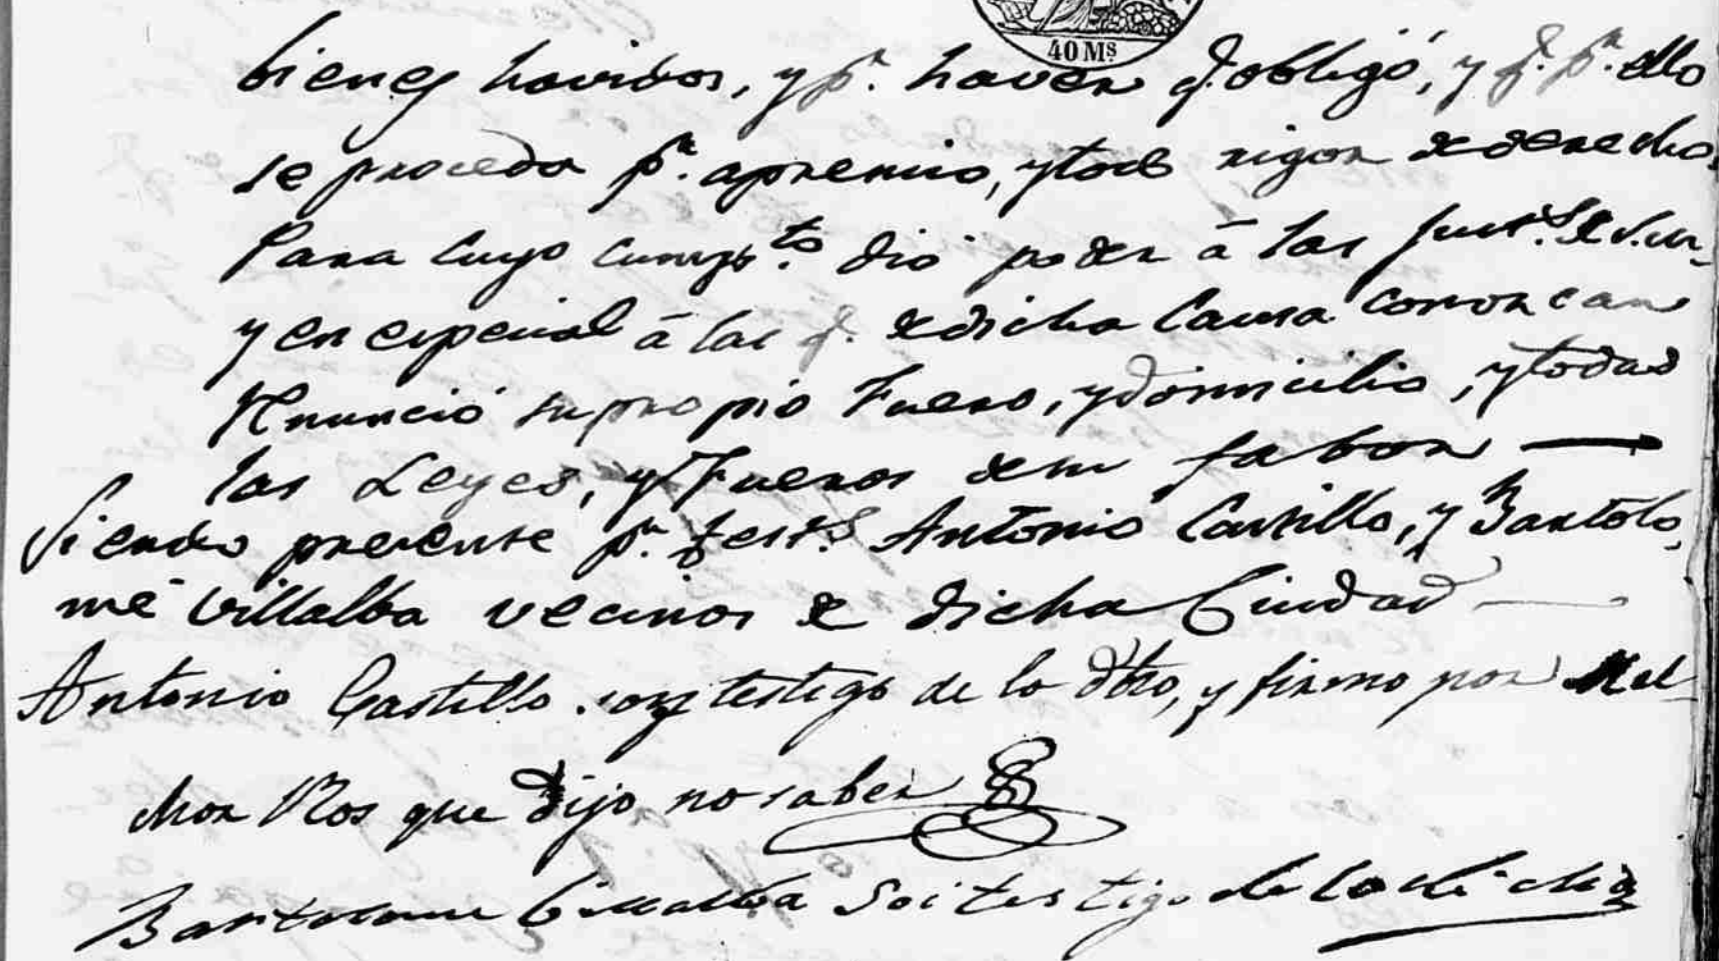 40 Ms
bienes havidos, y pr. haver q. obligó, y q. pa. ello
se proceda pr. apremio, y todo rigor de derecho
Para cuyo cumpto. dió poder á las Justs. de S.M.
y en especial á las q. de dicha Causa conozcan
Renunció su propio Fuero, y domicilio, y todas
las Leyes, y Fueros de su fabor
Siendo presente pr. testgs. Antonio Castillo, y Bartolo,
mé Villalba vecinos de dicha Ciudad
Antonio Castillo soy testigo de lo dho, y firmo por Mel-
chor Ros que dijo no saber
Bartolome Villalba Soi testigo de lo dicho